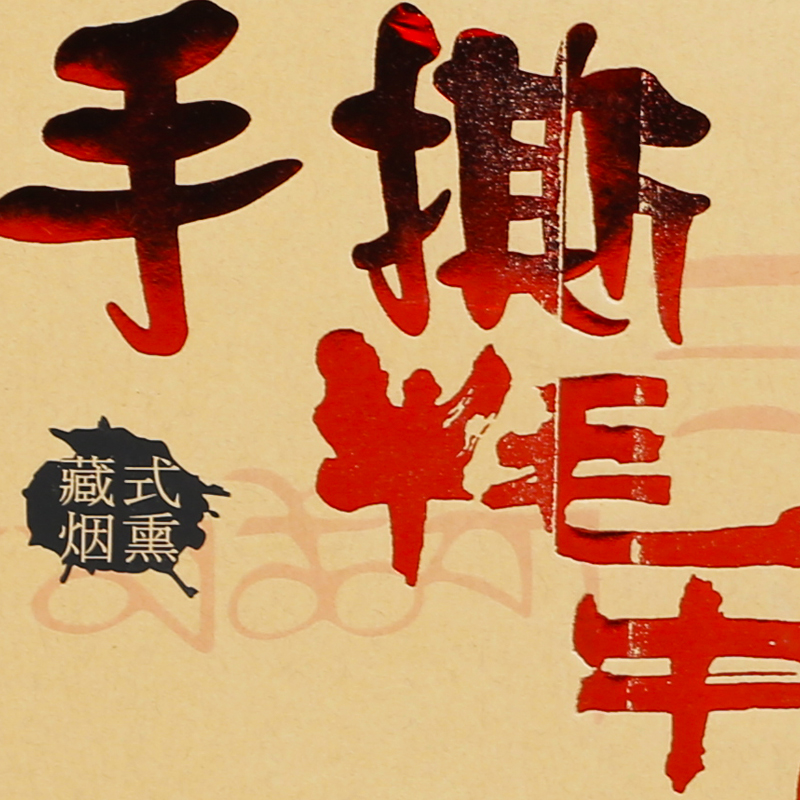 手撕
牦牛
藏式
烟熏